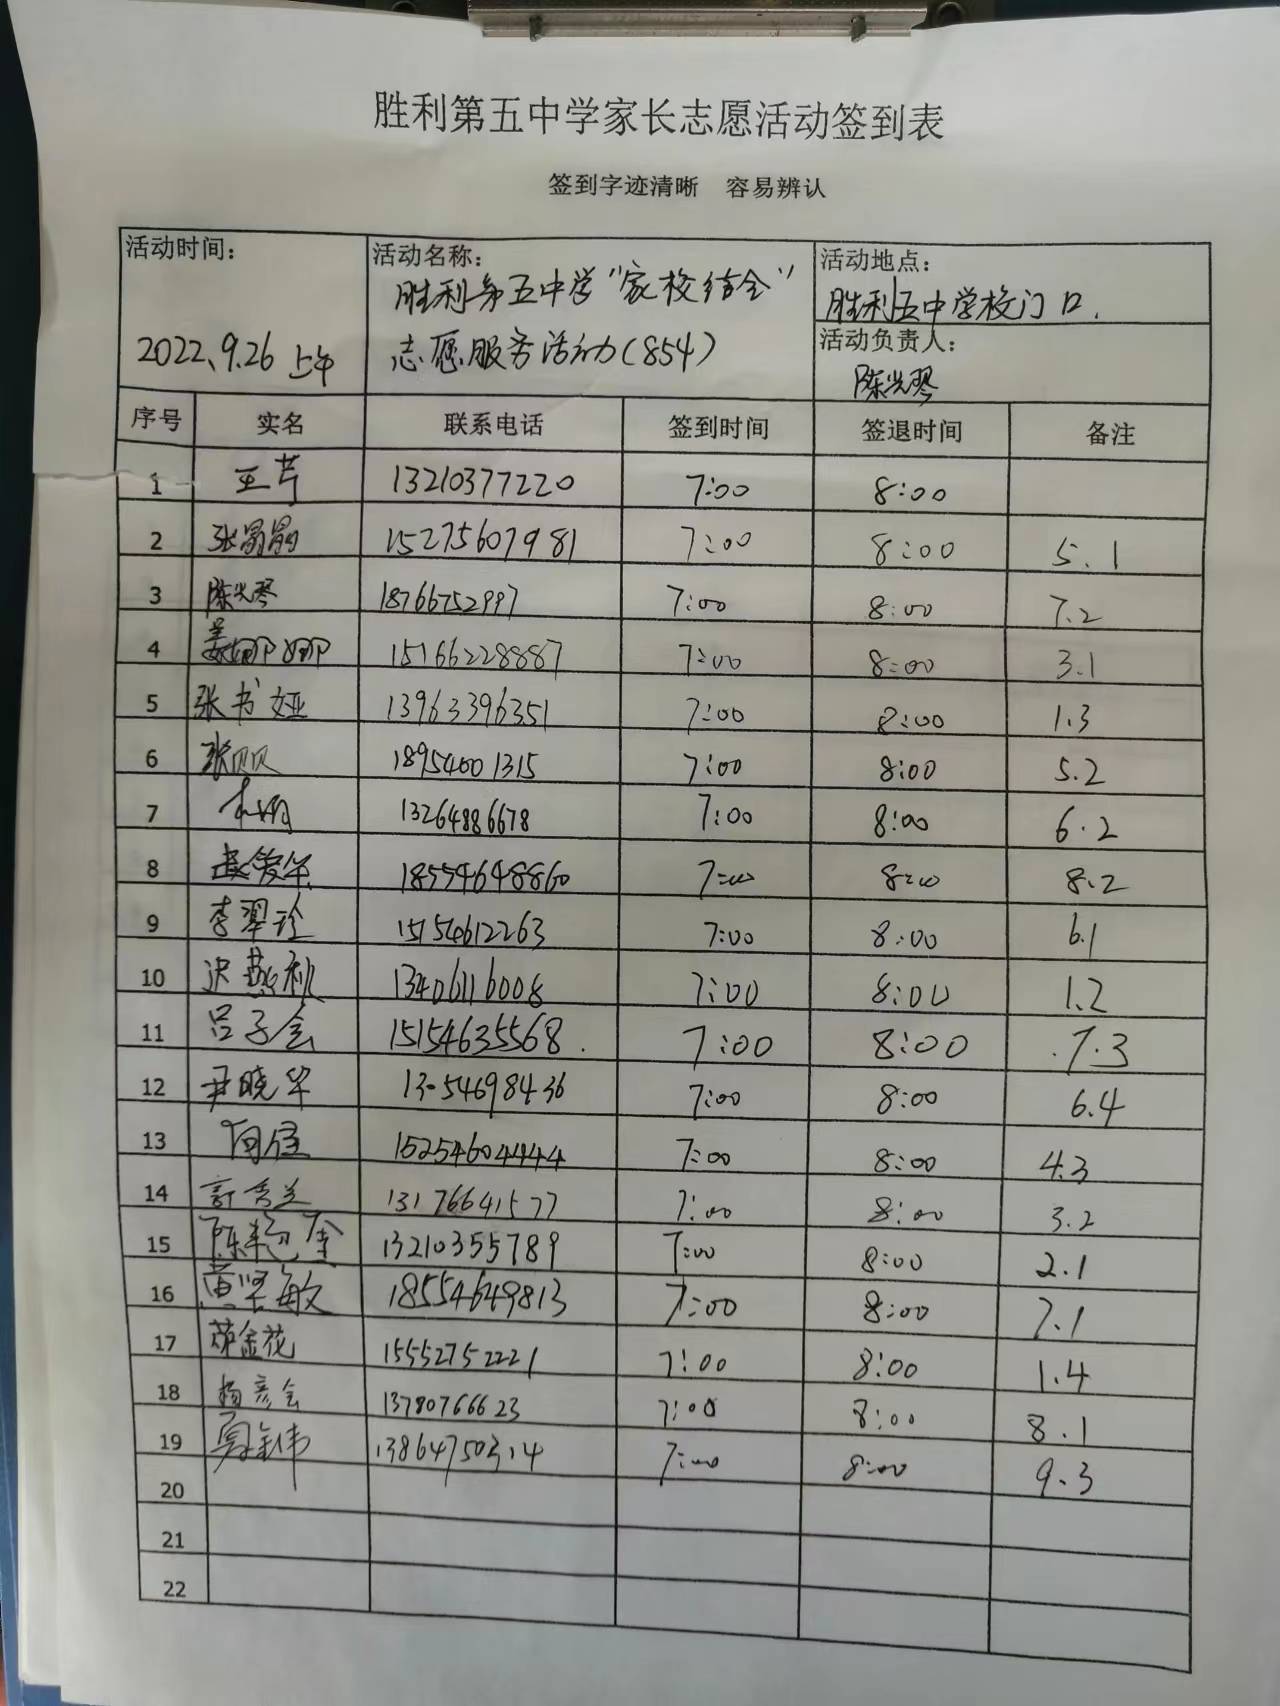 胜利第五中学家长志愿活动签到表
签到字迹清晰 容易辨认
活动时间:
2022、9.26 上午
活动名称:
胜利第五中学“家校结合”
志愿服务活动(854)
活动地点:
胜利五中学校门口.
活动负责人:
陈光琴
序号 实名 联系电话 签到时间 签退时间 备注
1 王芹 13210377220 7:00 8:00
2 张 15275607981 7:00 8:00 5.1
3 陈光琴 18766752997 7:00 8:00 7.2
4 姜娜娜 15166228887 7:00 8:00 3.1
5 张书娅 13963396351 7:00 8:00 1.3
6 张贝贝 18954001315 7:00 8:00 5.2
7 13264886678 7:00 8:00 6.2
8 18554648860 7:00 8:00 8.2
9 李翠珍 15154612263 7:00 8:00 6.1
10 迟燕秋 13406116008 7:00 8:00 1.2
11 吕子会 15154635568. 7:00 8:00 .7.3
12 尹晓华 13054698436 7:00 8:00 6.4
13 15254604444 7:00 8:00 4.3
14 13176641577 7:00 8:00 3.2
15 陈艳金 13210355789 7:00 8:00 2.1
16 黄坚敏 18554649813 7:00 8:00 7.1
17 金花 15552752221 7:00 8:00 1.4
18 杨彦会 13780766623 7:00 8:00 8.1
19 13864750314 7:00 8:00 9.3
20
21
22